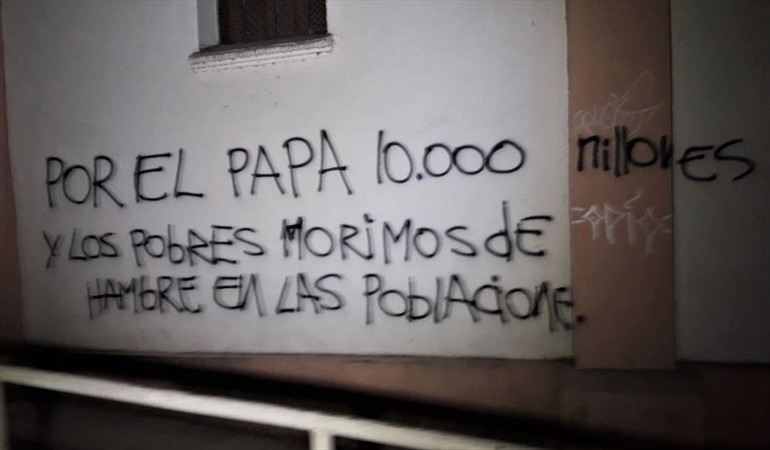 POR EL PAPA 10.000 millones
Y LOS POBRES MORIMOS dE
HAMbRE EN LAS PoblAcione.
odio